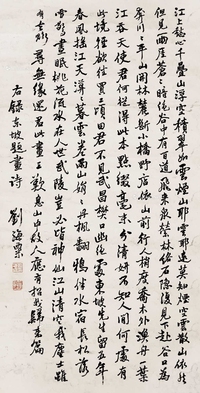 江上愁心千疊山浮空積翠如雲煙山耶雲耶遠莫知煙空雲散山依然
但見兩崖蒼蒼暗絕谷中有百道飛來泉縈林絡石隱復見下赴谷口為
奔川川平山開林麓斷小橋野店依山前行人稍度喬木外漁舟一葉
江吞天使君何從得此本點綴毫末分清妍不知人間何處有
此境徑欲往買二頃田君不見武昌樊口幽絕處東坡先生留五年
春風搖江天漠漠暮雲卷雨山娟娟丹楓翻鴉伴水宿長松落
雪驚晝眠桃花流水在人世武陵豈必皆神仙江山清空我塵土雖
有去路尋無緣還君此畫三歎息山中故人應有招我歸來篇
右錄東坡題畫詩
劉海粟